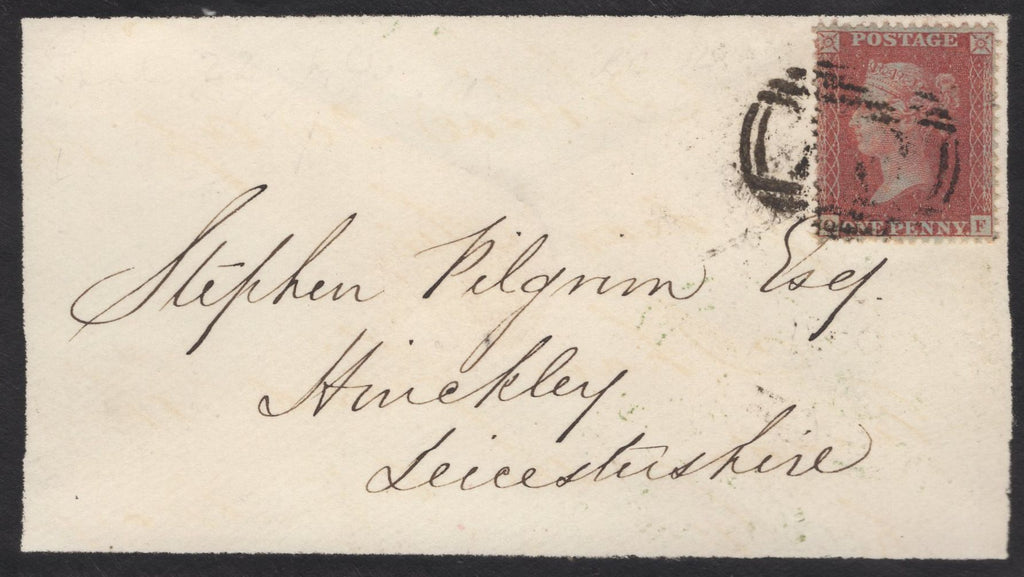 POSTAGE
ONE PENNY
Q F
Stephen Pilgrim Esq.
Hinckley
Leicestershire